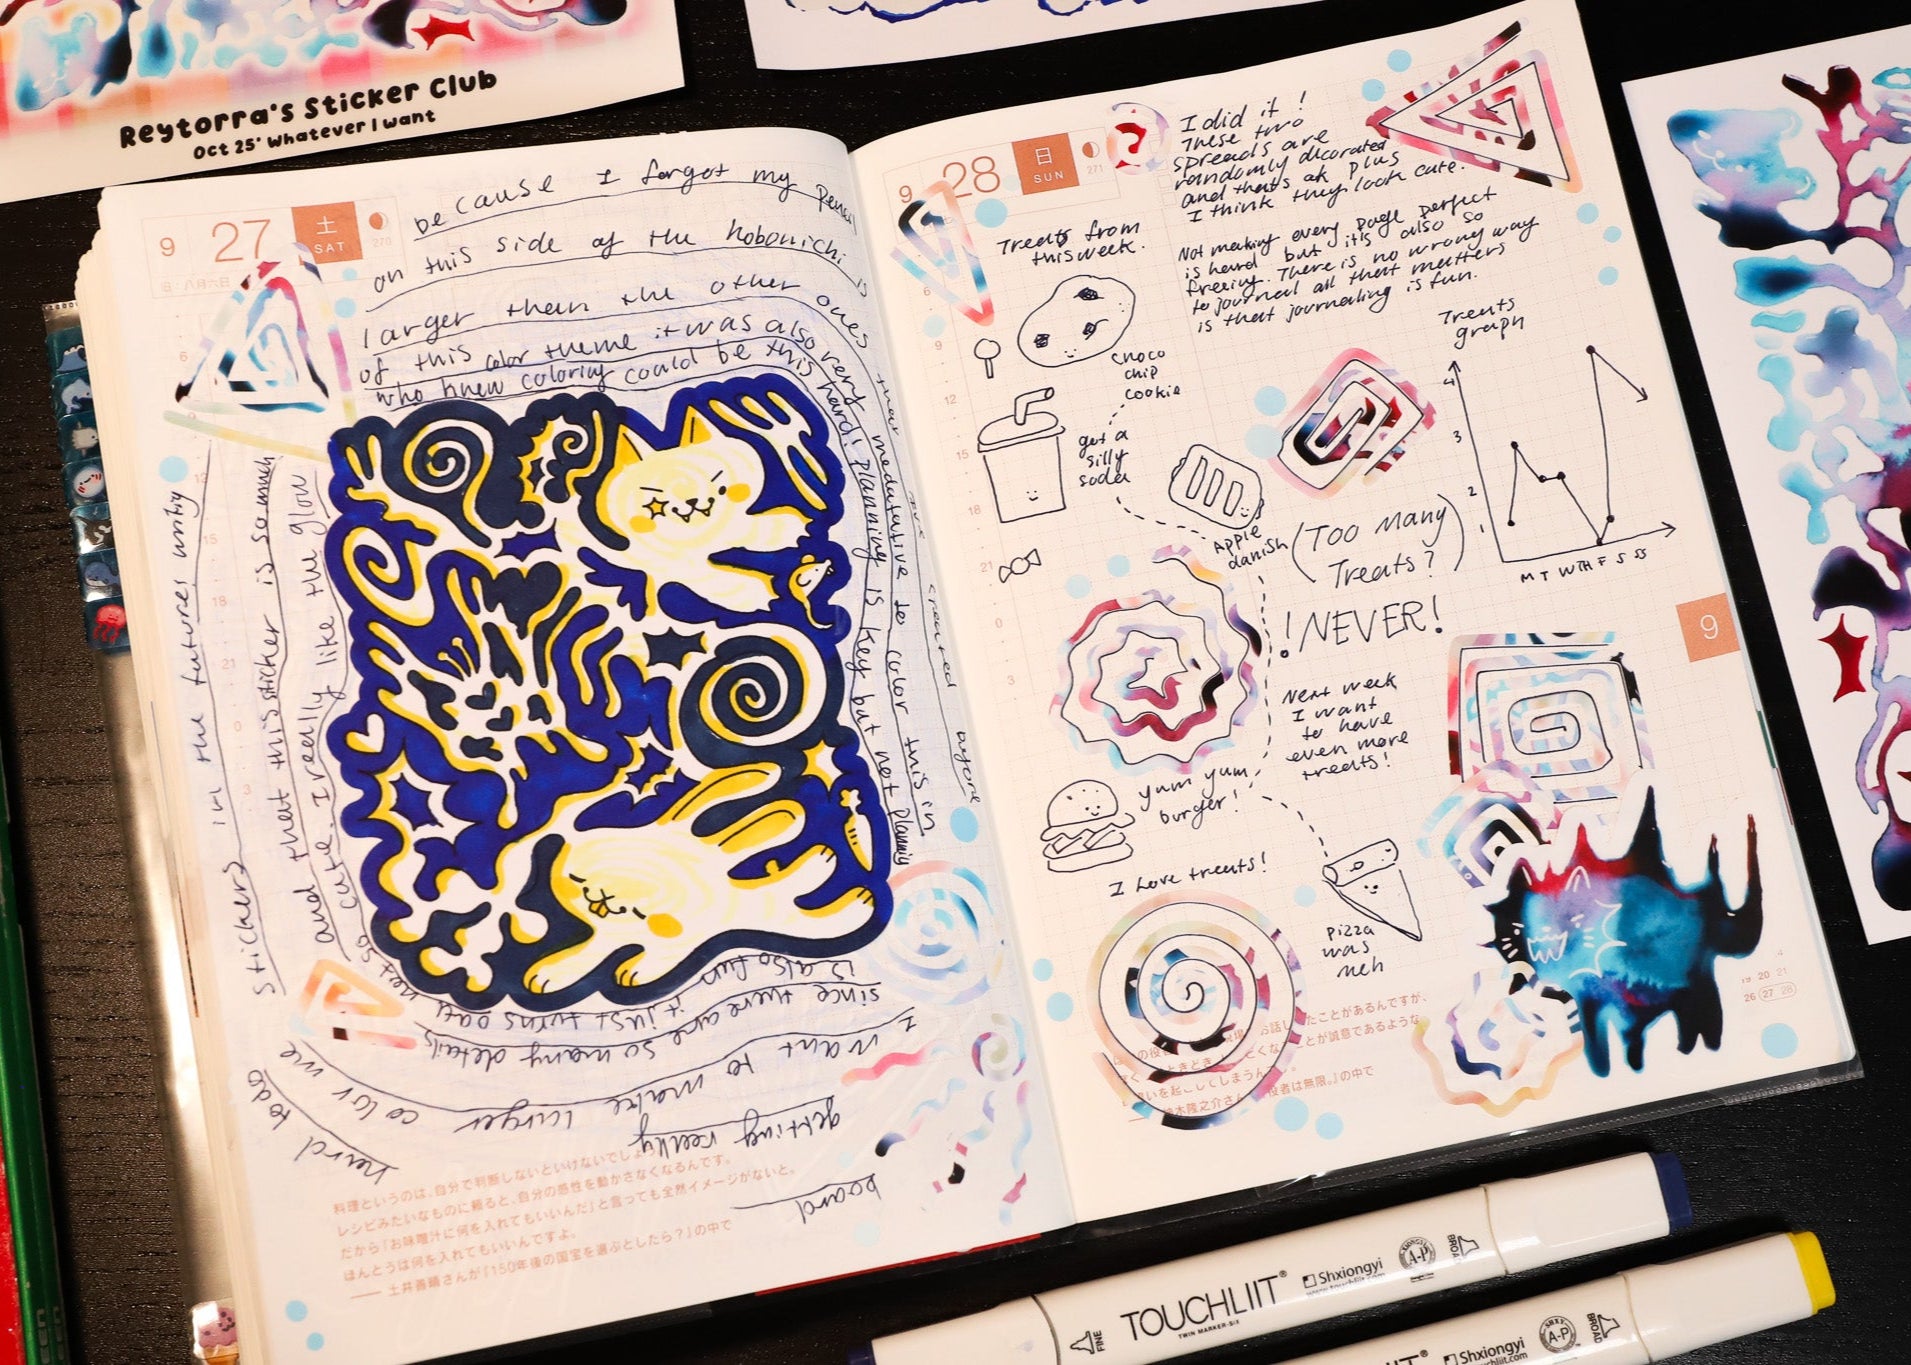 Reytorra's Sticker Club
Oct 25' Whatever I want
9
27
土
SAT
270
旧八月六日
because I forgot my pencil
on this side of the hobonichi is
larger than the other ones
of this color theme it was also very
who knew coloring could be this hard! Planning is key but not planning
is also fun
since there are so many details it just turns out neat so
cute. I really like the glow
and that this sticker is so much
more meditative to color this in
I want to make larger
stickers in the future
getting really
board
hard too
color me
料理というのは、自分で判断しないといけないでしょ。
レシピみたいなものに頼ると、自分の感性を動かさなくなるんです。
だから「お味噌汁に何を入れてもいいんだ」と言っても全然イメージがないと。
ほんとうは何を入れてもいいんですよ。
── 土井善晴さんが『150年後の国宝を選ぶとしたら?』の中で
9
28
日
SUN
271
I did it!
These two
spreads are
randomly decorated
and that's ok plus
I think they look cute.
Not making every page perfect
is hard but it's also so
freeing. There is no wrong way
to journal all that matters
is that journaling is fun.
Treats from
this week.
choco
chip
cookie
got a
silly
soda
apple
danish
(Too many
Treats?)
!NEVER!
Treats
graph
4
3
2
1
M T W TH F S S
Next week
I want
to have
even more
treats!
yum yum
burger!
I love treats!
pizza
was
meh
9
20 21
26 27 28
TOUCHLIIT
TWIN MARKER-SIX
FINE
Shxiongyi
www.touchliit.com
A-P
BROAD
Shxiongyi
touchliit.com
A-P
BROAD